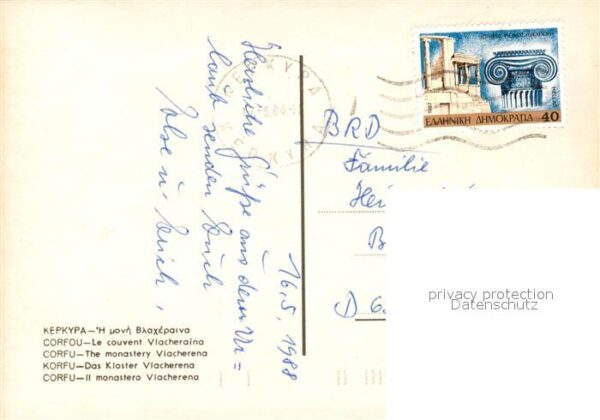 16.5.1988
Herzliche Grüße aus dem Ur=
laub senden Euch
Ilse u. Erich.
ΚΕΡΚΥΡΑ
ΚΕΡΚΥΡΑ
ΕΛΛΗΝΙΚΗ ΔΗΜΟΚΡΑΤΙΑ 40
BRD
Familie
D 6
privacy protection
Datenschutz
ΚΕΡΚΥΡΑ—Ἡ μονή Βλαχέραινα
CORFOU—Le couvent Vlacheraina
CORFU—The monastery Vlacherena
KORFU—Das Kloster Vlacherena
CORFU—Il monastero Vlacherena